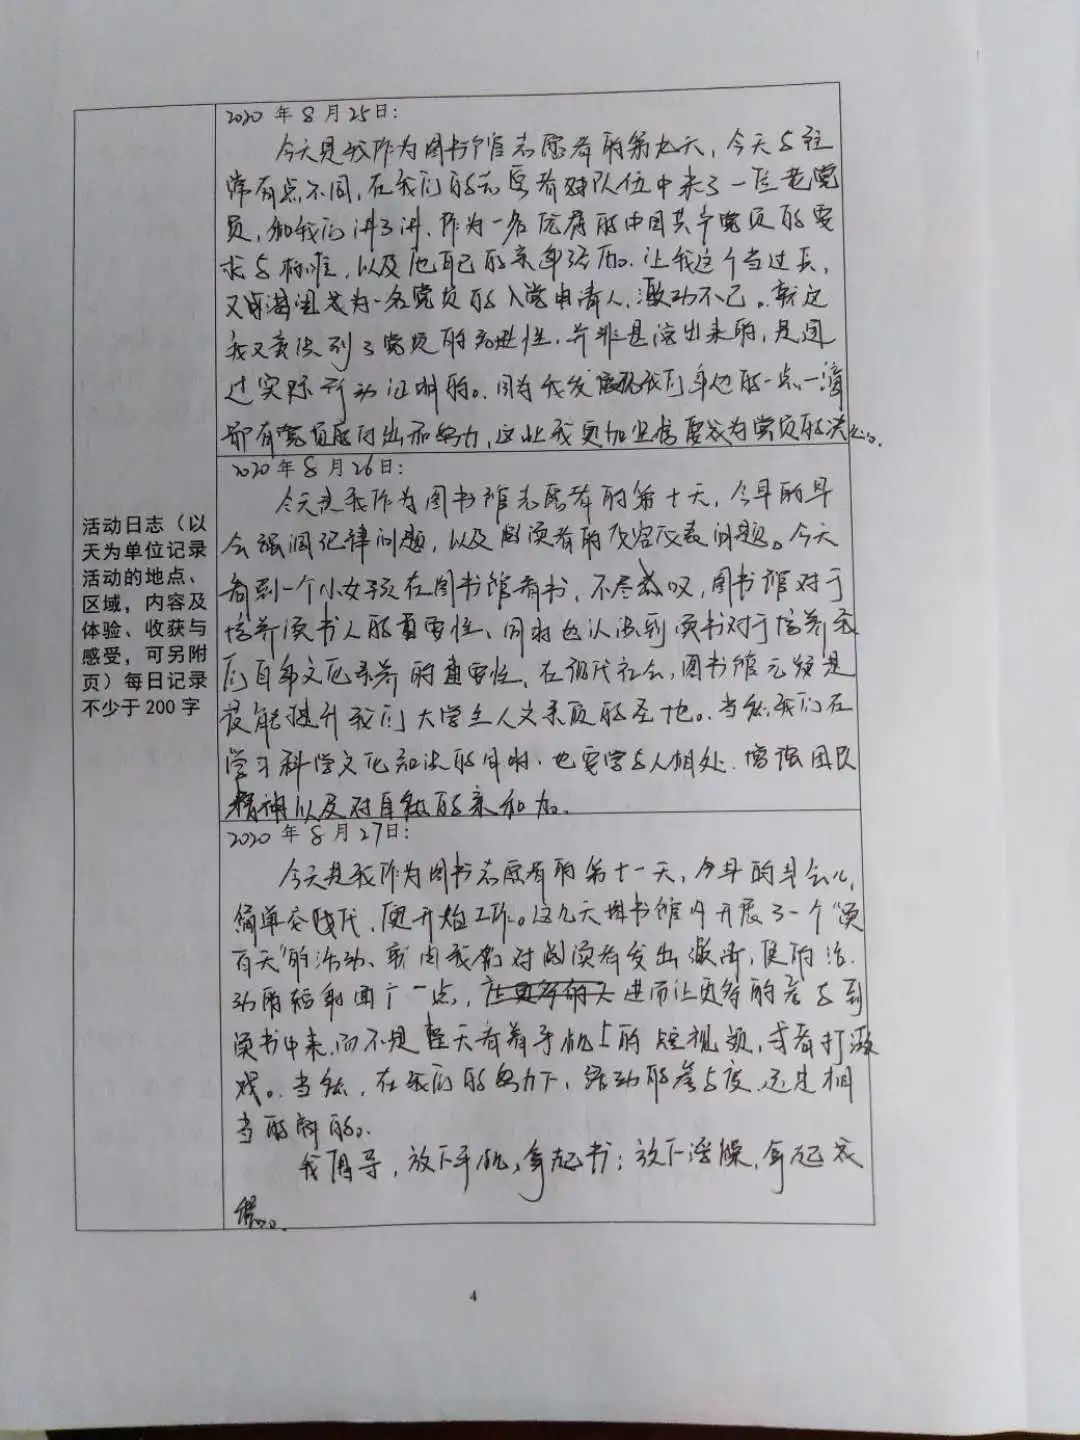 活动日志（以
天为单位记录
活动的地点、
区域，内容及
体验、收获与
感受，可另附
页）每日记录
不少于200字
2020年8月25日：
今天是我作为图书馆志愿者的第九天，今天与往
常有点不同，在我们的志愿者队伍中来了一位老党
员，和我们讲了讲，作为一名优秀的中国共产党员的要
求与标准，以及他自己的亲身经历。让我这个当过兵，
又渴望成为一名党员的入党申请人，激动不已。就这
我又意识到了党员的先进性，并非是演出来的，是通
过实际行动证明的。因为我发现我们身边的一点一滴
都有党员在付出和努力，这让我更加坚信要成为党员的决心。
2020年8月26日：
今天是我作为图书馆志愿者的第十天，今早的早
会强调纪律问题，以及与读者的仪容仪表问题。今天
看到一个小女孩在图书馆看书，不尽感叹，图书馆对于
培养读书人的重要性，同时也认识到读书对于培养我
们自身文化素养的重要性，在现代社会，图书馆无疑是
最能提升我们大学生人文素质的圣地。当然我们在
学习科学文化知识的同时，也要学与人相处，增强团队
精神以及对自然的亲和力。
2020年8月27日：
今天是我作为图书志愿者的第十一天，今早的早会儿，
简单交代，便开始工作。这几天图书馆内开展了一个“读
百天”的活动、就由我们对阅读者发出邀请，使的活
动的辐射面广一点，进而让更多的人参与到
读书中来，而不是整天看着手机上的短视频，或者打游
戏。当然，在我们的努力下，活动的参与度还是相
当的高的。
我倡导，放下手机，拿起书；放下浮躁，拿起
4